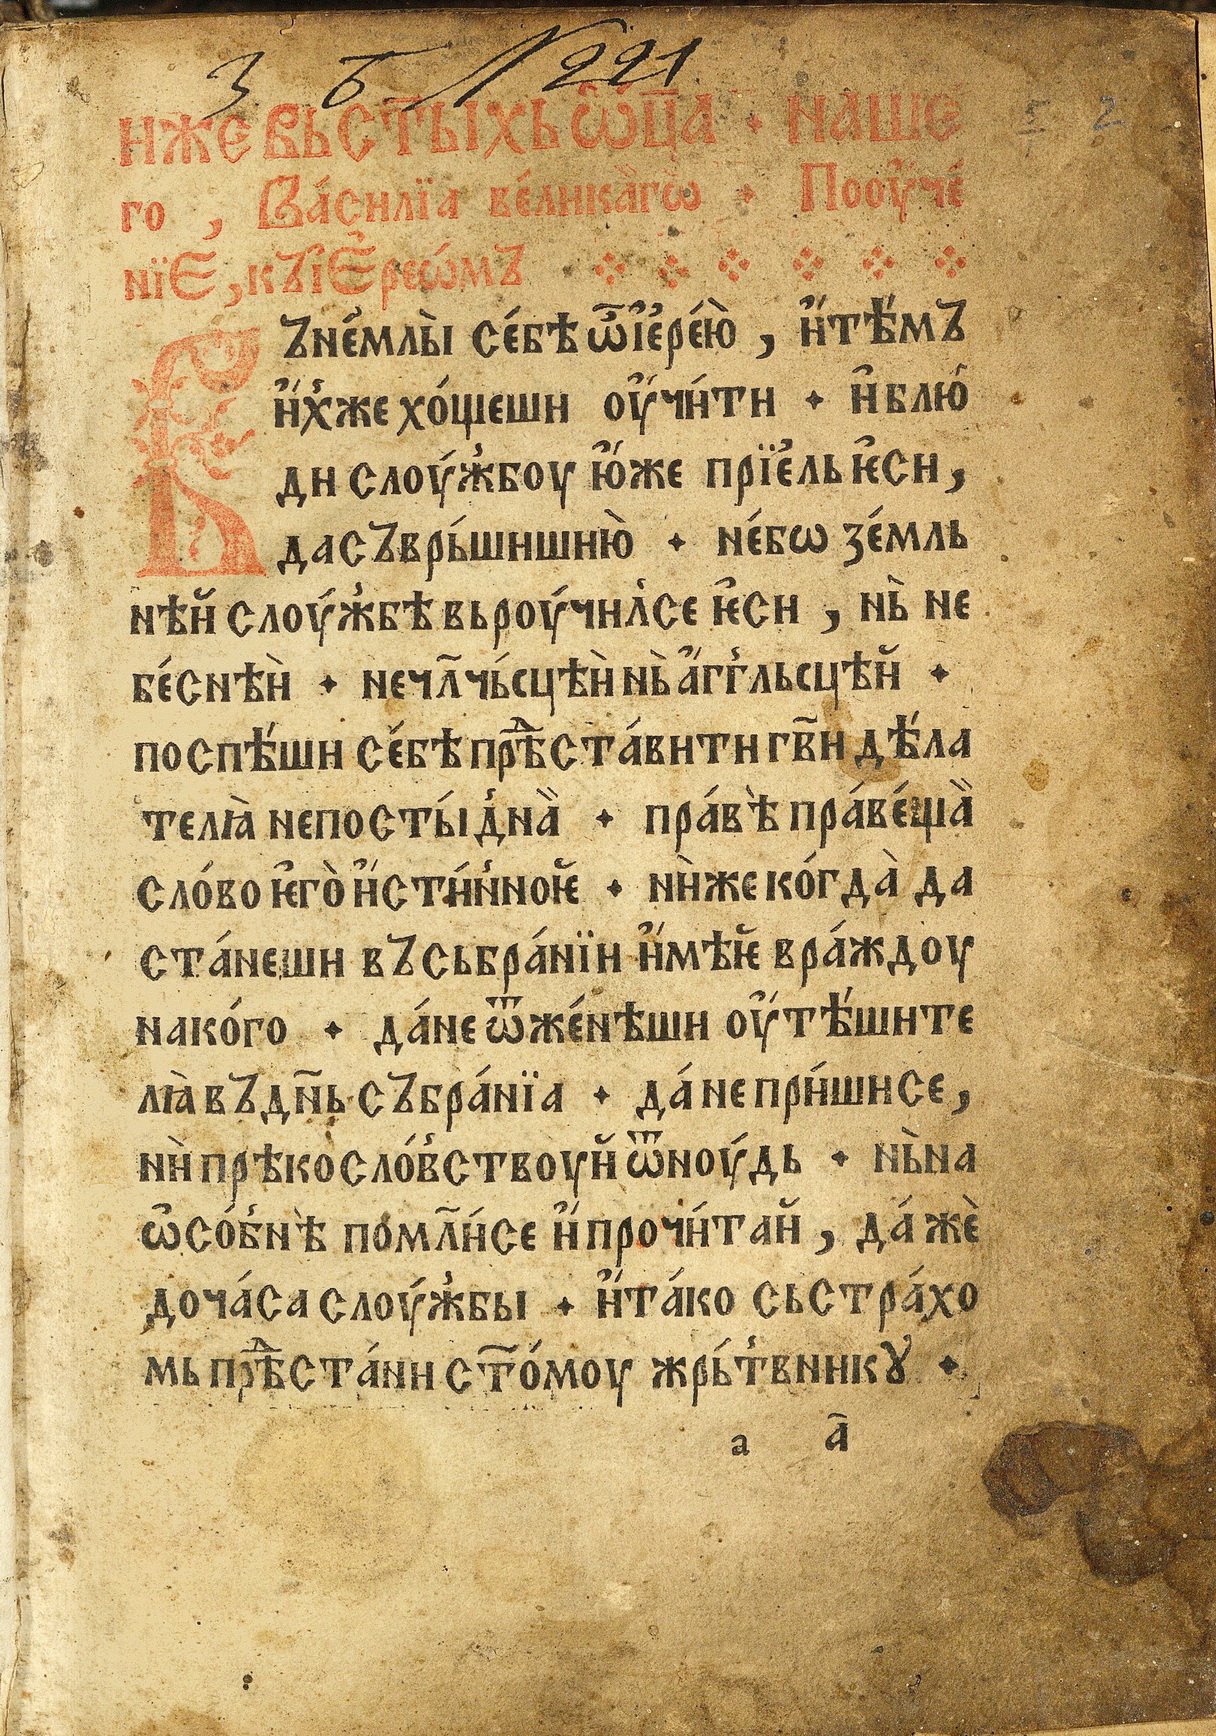 З Б №221
2
иже вь ст҃ыхь ѡ҃ц҃а · наше
го , Ва́силїа ве́лика̀гѡ · Поѹ҆че́
нїе , къ і҆ере́ѡмъ
ъне́млы̀ се́бѣ ѽі҆е҆ре́ю̀ , и҆́тѣ́мъ
и҆́х҆же хо́щеши ѹ҆чи́ти · и҆ блю̑
ди слѹ́ж҆бѹ ю҆́же прїе́ль ѥ҆си ,
да съврь́шишию̀ · не́бѡ зе́мль
нѣи̑ слѹ́ж҆бѣ вьрѹ́чил҆се ѥ҆си , нь̀ не
бе́снѣи̑ · не чл҃чь́сцѣи̑ нь̀ а҆́гг҆льсцѣи̑ ·
поспѣ́ши се́бѣ прⷣѣста́вити гв҃и дѣ́ла
телꙗ̀ непосты́д҆на̏ · пра́вѣ̀ пра́ве́ща̏
сло́во ѥ҆го̀ и҆́сти́н҆ноѥ̑ · ни̏же ко́гда̀ да
ста́неши въ сьбра́нїи и҆́мѣѥ̑ вра́ждѹ
на ко́го · да́ не ѿже́нѣши ѹ҆́тѣ́шите
лꙗ̀ въ дн҃ь събра́нїа · да́ не при́шисе ,
ни̏ прѣкосло́в҆ствѹи̑ ѿнѹ́дь · нь̀ на
ѡ҆со́б҆нѣ̀ помл҃и́се и҆́ прочи́таи̑ , да́же̏
до ча́са слѹ́ж҆бы · и҆́ та́ко сь стра́хо
мь прⷣѣста́ни ст҃о́мѹ жрь́т҆вникꙋ ·
а а҃